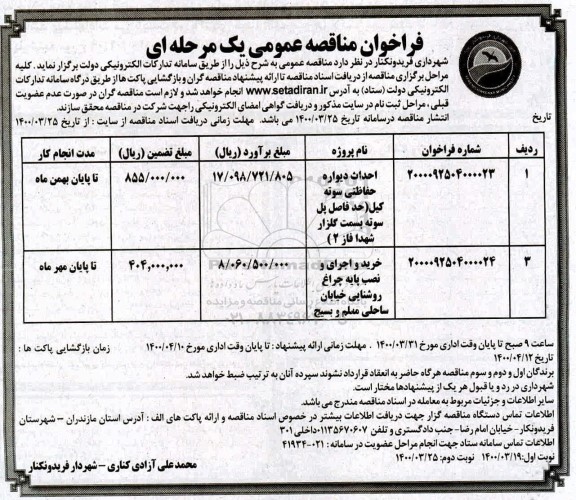 فراخوان مناقصه عمومی یک مرحله ای
شهرداری فریدونکنار در نظر دارد مناقصه عمومی به شرح ذیل را از طریق سامانه تدارکات الکترونیکی دولت برگزار نماید. کلیه
مراحل برگزاری مناقصه از دریافت اسناد مناقصه تا ارائه پیشنهاد مناقصه گران و بازگشایی پاکت ها از طریق درگاه سامانه تدارکات
الکترونیکی دولت (ستاد) به آدرس www.setadiran.ir انجام خواهد شد و لازم است مناقصه گران در صورت عدم عضویت
قبلی، مراحل ثبت نام در سایت مذکور و دریافت گواهی امضای الکترونیکی را جهت شرکت در مناقصه محقق سازند.
تاریخ انتشار مناقصه درسامانه تاریخ ۱۴۰۰/۰۳/۲۵ می باشد. مهلت زمانی دریافت اسناد مناقصه از سایت: از تاریخ ۱۴۰۰/۰۳/۲۵
ردیف شماره فراخوان نام پروژه مبلغ برآورد (ریال) مبلغ تضمین (ریال) مدت انجام کار
۱ ۲۰۰۰۰۹۲۵۰۴۰۰۰۰۲۳ احداث دیواره ۱۷/۰۹۸/۷۲۱/۸۰۵ ۸۵۵/۰۰۰/۰۰۰ تا پایان بهمن ماه
حفاظتی سوته
کیل(حد فاصل پل
سوته بسمت گلزار
شهدا فاز ۲)
۳ ۲۰۰۰۰۹۲۵۰۴۰۰۰۰۲۴ خرید و اجرای و ۸/۰۶۰/۵۰۰/۰۰۰ ۴۰۴,۰۰۰,۰۰۰ تا پایان مهر ماه
نصب پایه چراغ
روشنایی خیابان
ساحلی معلم و بسیج
ساعت ۹ صبح تا پایان وقت اداری مورخ ۱۴۰۰/۰۳/۳۱. مهلت زمانی ارائه پیشنهاد: تا پایان وقت اداری مورخ ۱۴۰۰/۰۴/۱۰ زمان بازگشایی پاکت ها:
تاریخ ۱۴۰۰/۰۴/۱۲
برندگان اول و دوم و سوم مناقصه هرگاه حاضر به انعقاد قرارداد نشوند سپرده آنان به ترتیب ضبط خواهد شد.
شهرداری در رد و یا قبول هر یک از پیشنهادها مختار است.
سایر اطلاعات و جزئیات مربوط به معامله در اسناد مناقصه مندرج می باشد.
اطلاعات تماس دستگاه مناقصه گزار جهت دریافت اطلاعات بیشتر در خصوص اسناد مناقصه و ارائه پاکت های الف: آدرس استان مازندران – شهرستان
فریدونکار- خیابان امام رضا- جنب دادگستری و تلفن ۰۱۱۳۵۶۷۰۶۰۷داخلی۳۰۱
اطلاعات تماس سامانه ستاد جهت انجام مراحل عضویت در سامانه: ۰۲۱-۴۱۹۳۴
نوبت اول:۱۴۰۰/۰۳/۱۹ نوبت دوم: ۱۴۰۰/۰۳/۲۵
محمدعلی آزادی کناری – شهردار فریدونکنار